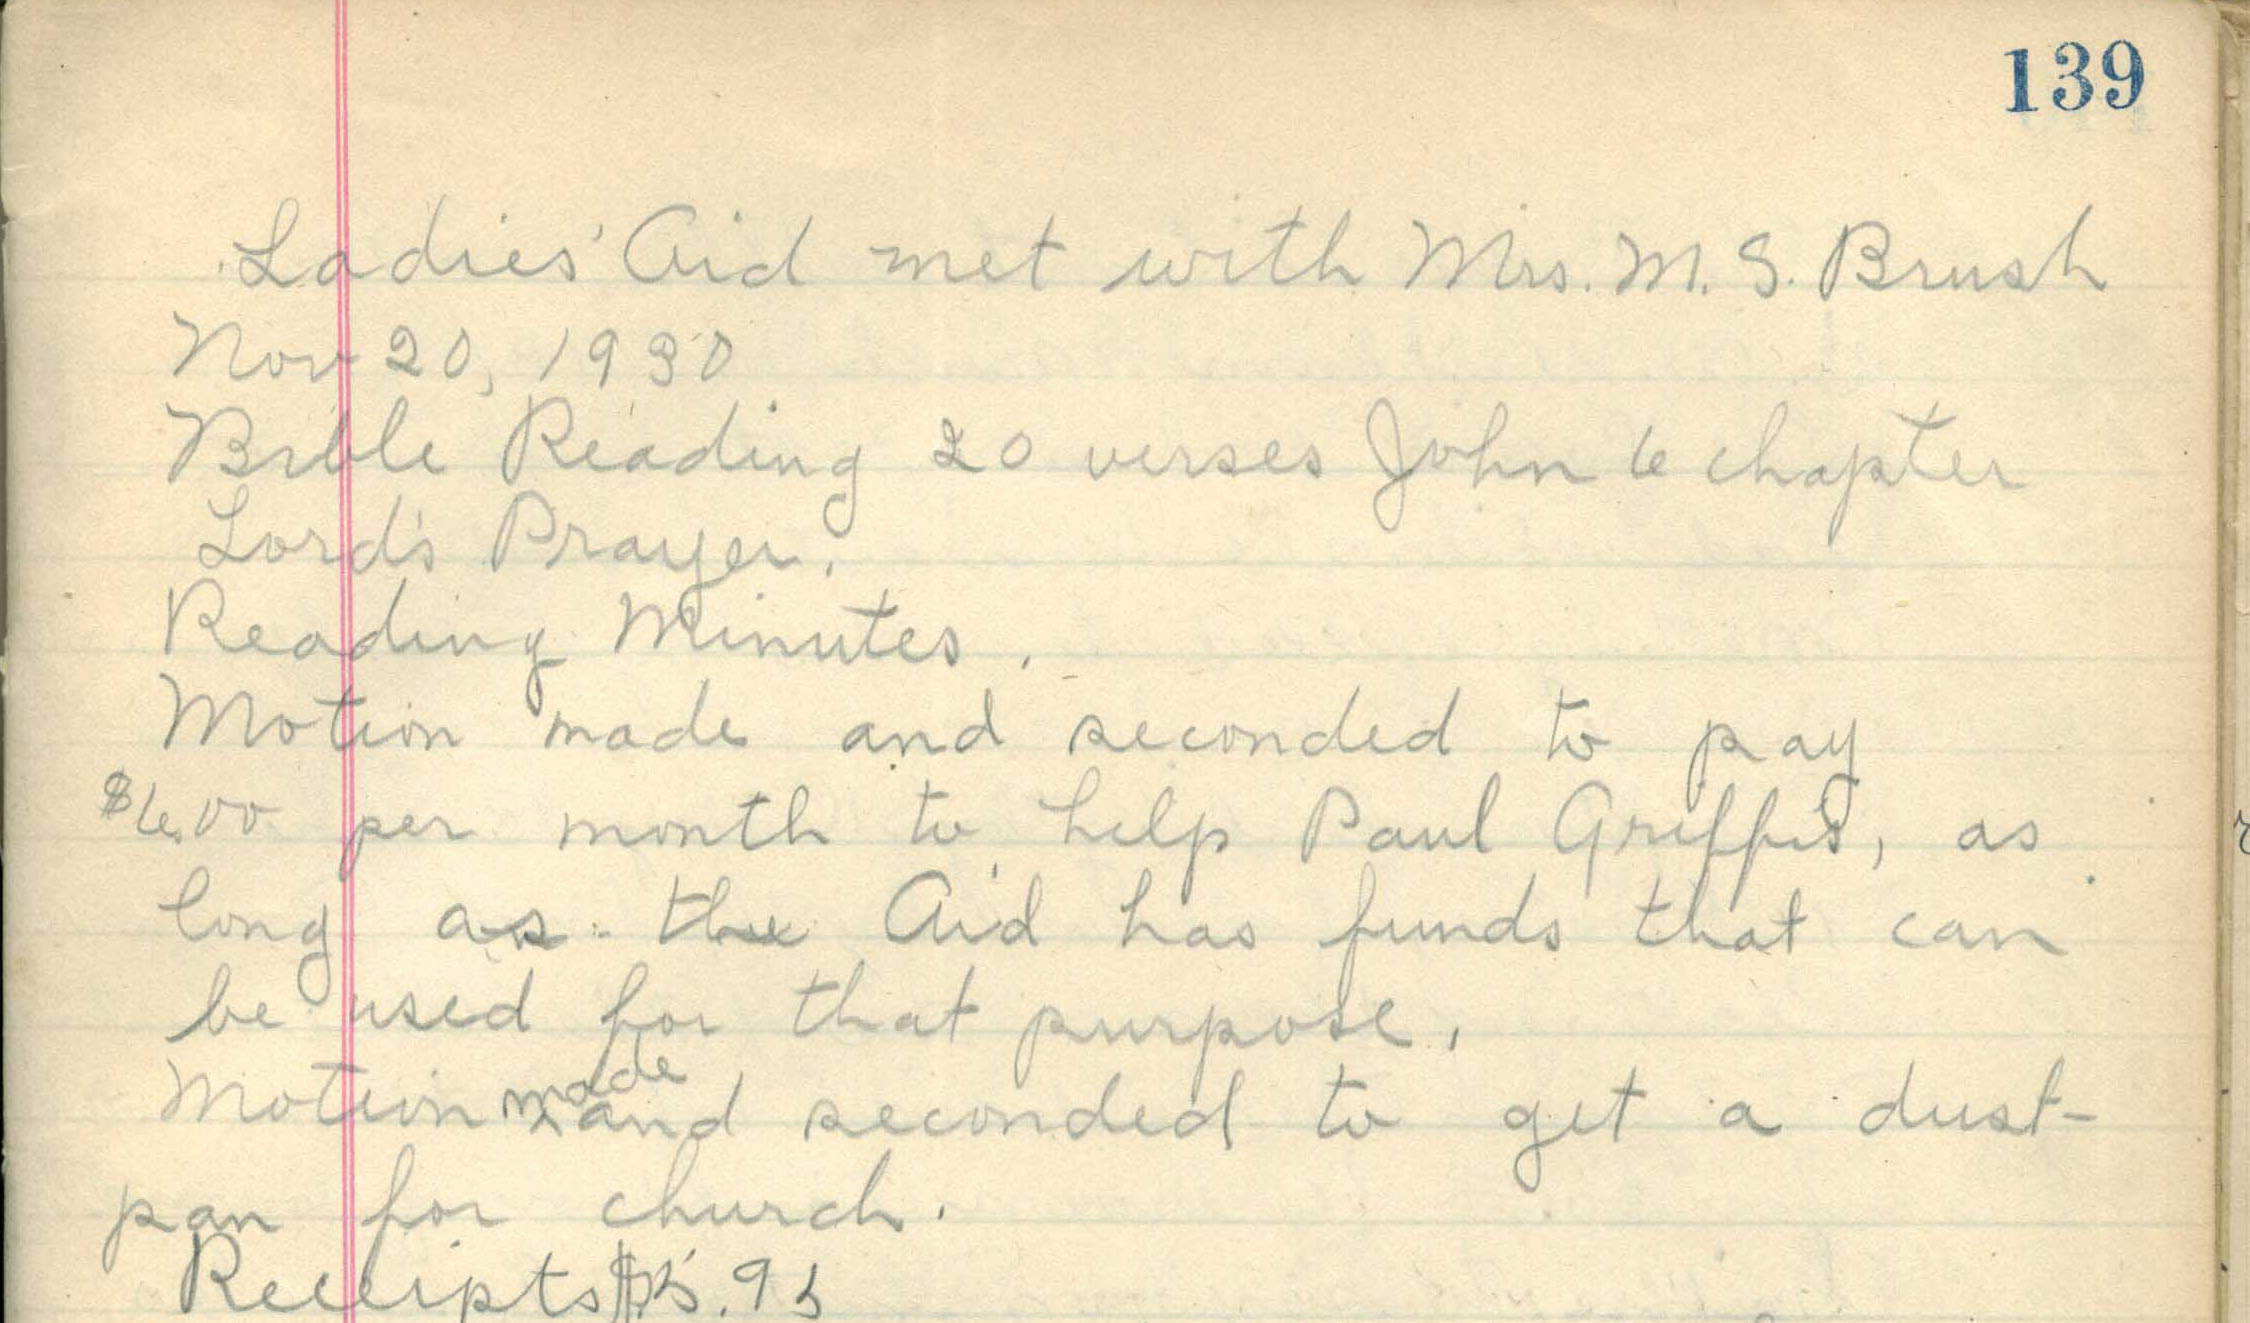 139
Ladies' Aid met with Mrs. M. S. Brush
Nov 20, 1930
Bible Reading 20 verses John 6 chapter
Lord's Prayer.
Reading Minutes.
Motion made and seconded to pay
$6.00 per month to help Paul Griffis, as
long as the Aid has funds that can
be used for that purpose.
Motion made and seconded to get a dust-
pan for church.
Receipts